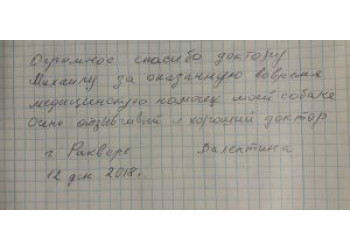 Огромное спасибо доктору
Михаилу за оказанную вовремя
медицинскую помощь моей собаке
Очень отзывчивый и хороший доктор
г. Раквере Валентина
12 дек 2018г.